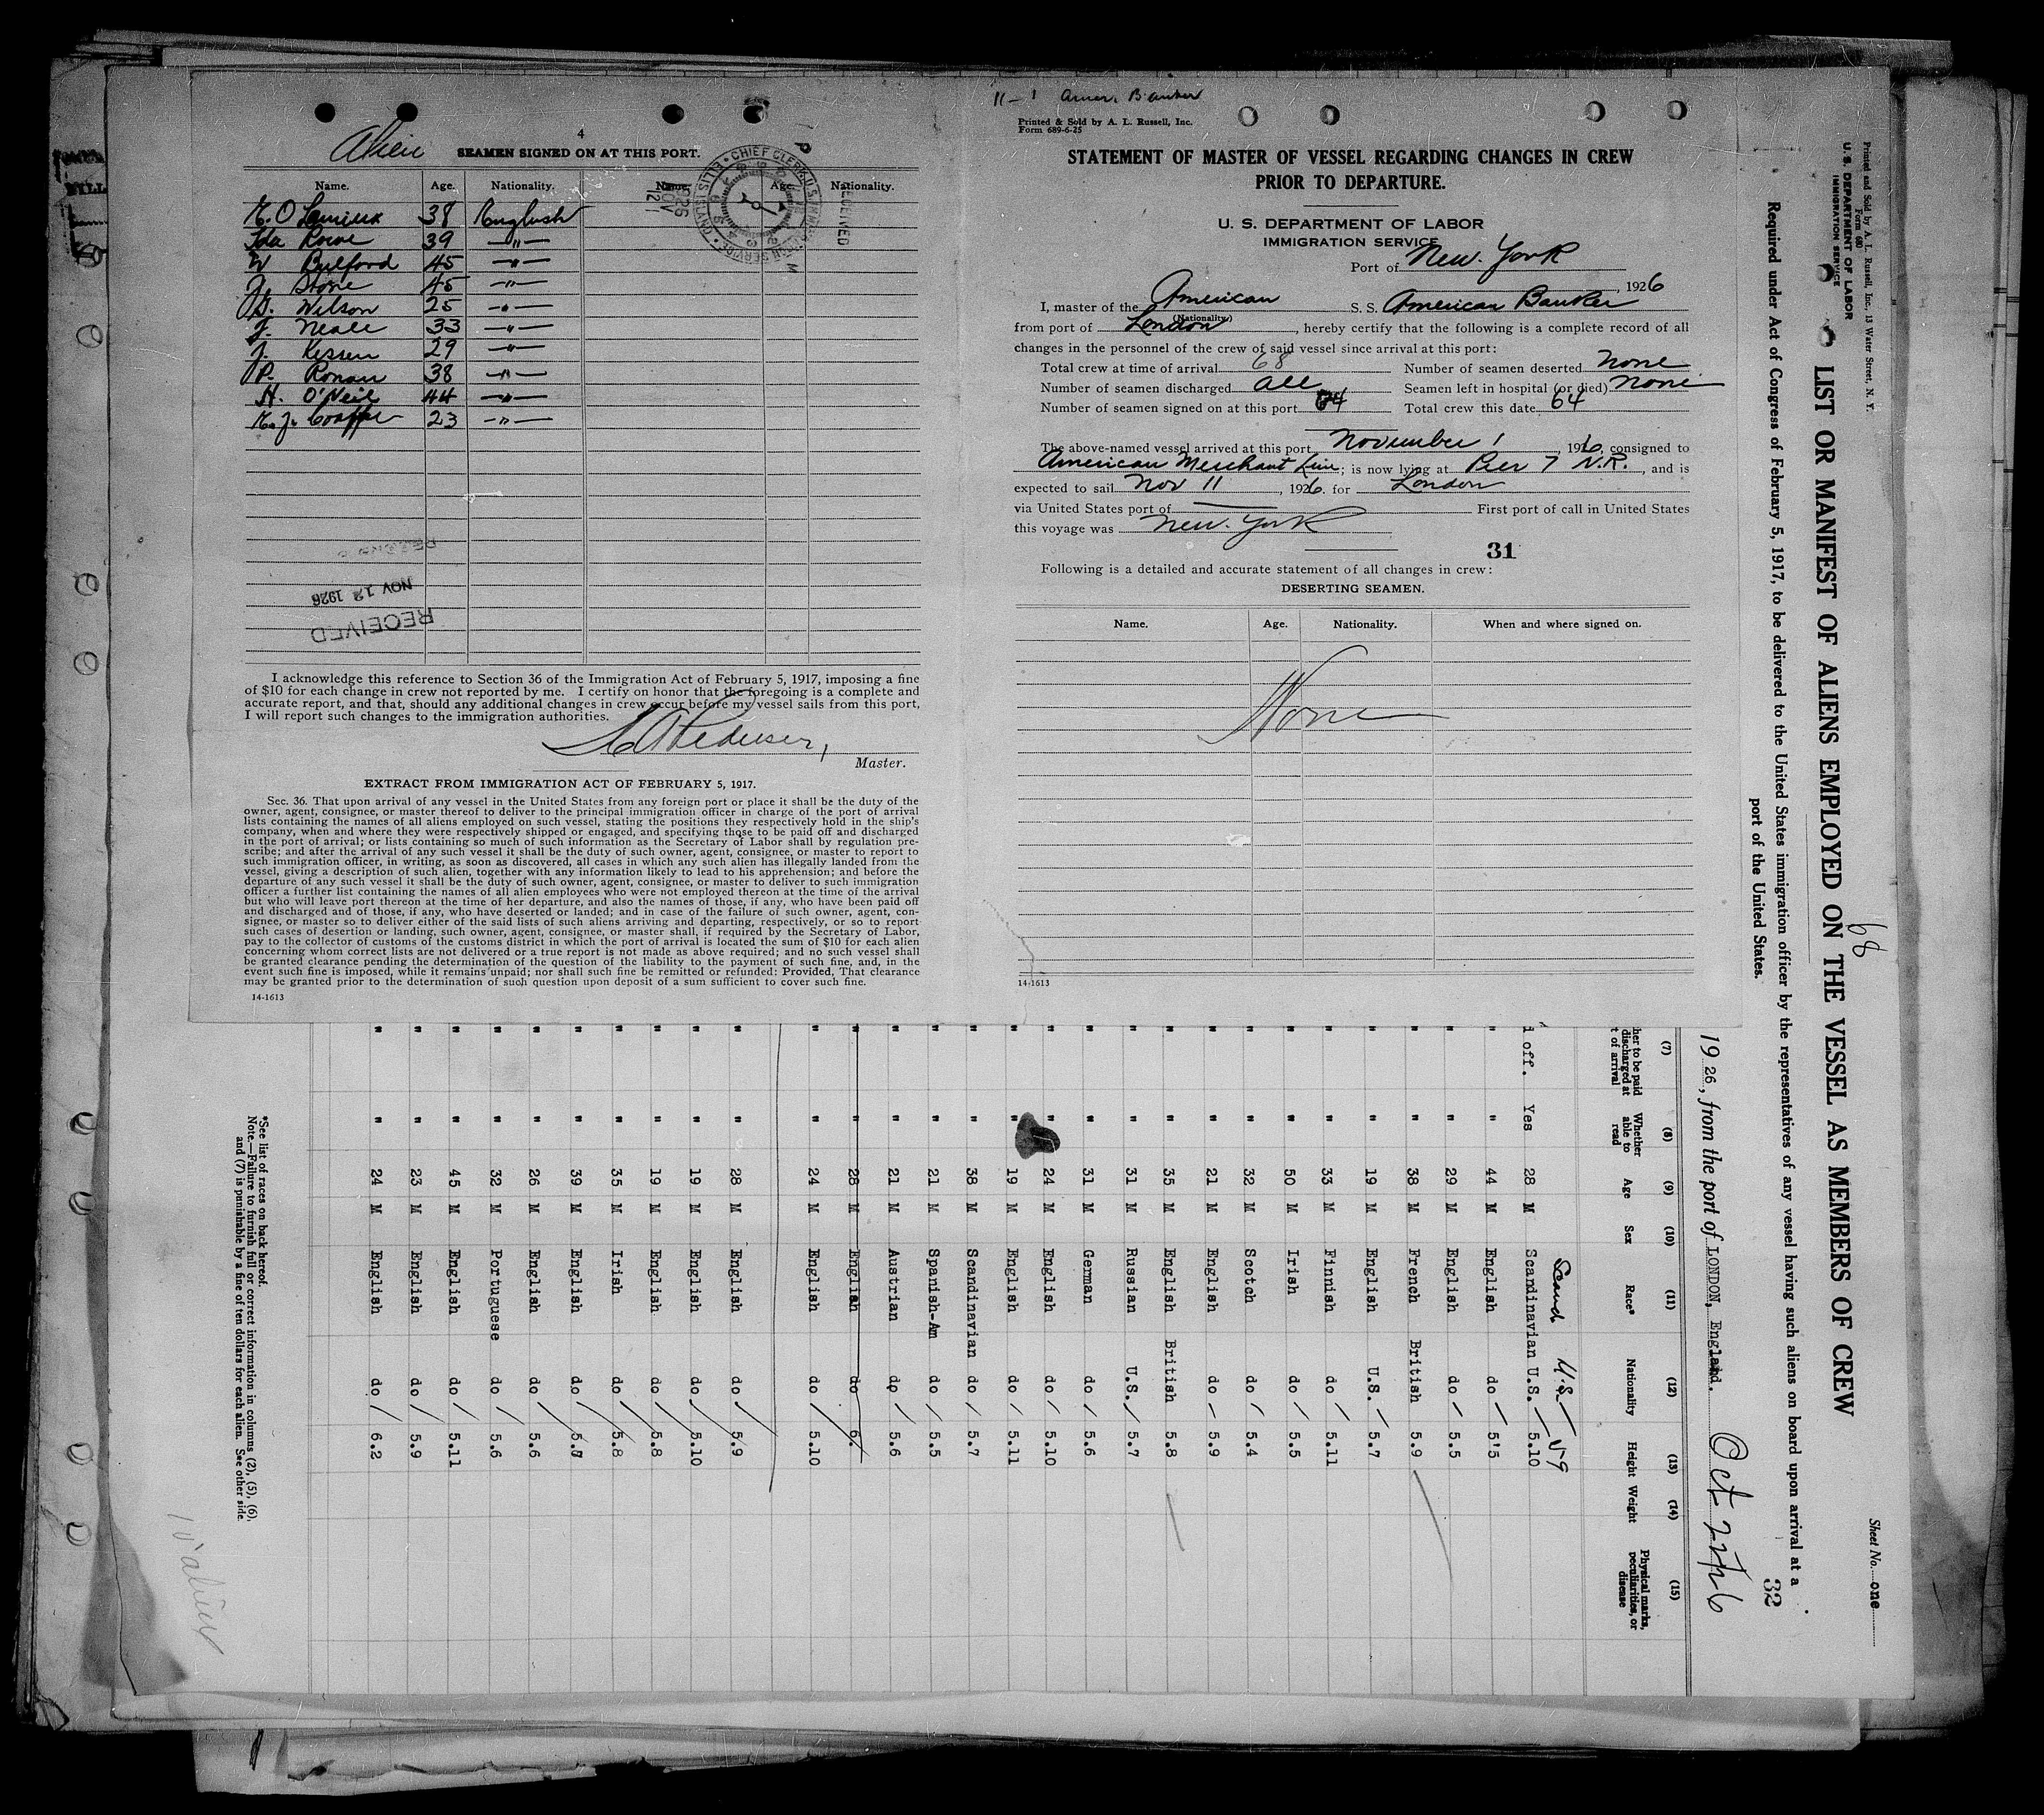 Alien
4
SEAMEN SIGNED ON AT THIS PORT.
Name. Age. Nationality. Name. Age. Nationality.
38 English
Ida Rowe 39 —"—
W Bulford 45 —"—
J. Stone 45 —"—
G. Wilson 25 —"—
J. Neale 33 —"—
J. Kissen 29 —"—
P. Ronan 38 —"—
H. O'Neil 44 —"—
23 —"—
CHIEF CLERK
RECEIVED
1926 NOV 12
NOV 12 1926
RECEIVED
I acknowledge this reference to Section 36 of the Immigration Act of February 5, 1917, imposing a fine
of $10 for each change in crew not reported by me. I certify on honor that the foregoing is a complete and
accurate report, and that, should any additional changes in crew occur before my vessel sails from this port,
I will report such changes to the immigration authorities.
Pedersen,
Master.
EXTRACT FROM IMMIGRATION ACT OF FEBRUARY 5, 1917.
Sec. 36. That upon arrival of any vessel in the United States from any foreign port or place it shall be the duty of the
owner, agent, consignee, or master thereof to deliver to the principal immigration officer in charge of the port of arrival
lists containing the names of all aliens employed on such vessel, stating the positions they respectively hold in the ship's
company, when and where they were respectively shipped or engaged, and specifying those to be paid off and discharged
in the port of arrival; or lists containing so much of such information as the Secretary of Labor shall by regulation pre-
scribe; and after the arrival of any such vessel it shall be the duty of such owner, agent, consignee, or master to report to
such immigration officer, in writing, as soon as discovered, all cases in which any such alien has illegally landed from the
vessel, giving a description of such alien, together with any information likely to lead to his apprehension; and before the
departure of any such vessel it shall be the duty of such owner, agent, consignee, or master to deliver to such immigration
officer a further list containing the names of all alien employees who were not employed thereon at the time of the arrival
but who will leave port thereon at the time of her departure, and also the names of those, if any, who have been paid off
and discharged and of those, if any, who have deserted or landed; and in case of the failure of such owner, agent, con-
signee, or master so to deliver either of the said lists of such aliens arriving and departing, respectively, or so to report
such cases of desertion or landing, such owner, agent, consignee, or master shall, if required by the Secretary of Labor,
pay to the collector of customs of the customs district in which the port of arrival is located the sum of $10 for each alien
concerning whom correct lists are not delivered or a true report is not made as above required; and no such vessel shall
be granted clearance pending the determination of the question of the liability to the payment of such fine, and, in the
event such fine is imposed, while it remains unpaid; nor shall such fine be remitted or refunded: Provided, That clearance
may be granted prior to the determination of such question upon deposit of a sum sufficient to cover such fine.
14-1613
11-1 Amer. Banker
Printed & Sold by A. L. Russell, Inc.
Form 689-6-25
STATEMENT OF MASTER OF VESSEL REGARDING CHANGES IN CREW
PRIOR TO DEPARTURE.
U. S. DEPARTMENT OF LABOR
IMMIGRATION SERVICE
Port of New York
, 1926
I, master of the American S. S. American Banker
(Nationality)
from port of London, hereby certify that the following is a complete record of all
changes in the personnel of the crew of said vessel since arrival at this port:
Total crew at time of arrival 68 Number of seamen deserted None
Number of seamen discharged all Seamen left in hospital (or died) none
Number of seamen signed on at this port 64 Total crew this date 64
The above-named vessel arrived at this port November 1, 1926, consigned to
American Merchant Line; is now lying at Pier 7 N.R., and is
expected to sail Nov 11, 1926. for London
via United States port of — First port of call in United States
this voyage was New York
31
Following is a detailed and accurate statement of all changes in crew:
DESERTING SEAMEN.
Name. Age. Nationality. When and where signed on.
None
14-1613
Printed and Sold by A. L. Russell, Inc., 13 Water Street, N. Y.
Form 680
U. S. DEPARTMENT OF LABOR
IMMIGRATION SERVICE
Sheet No. one
68
LIST OR MANIFEST OF ALIENS EMPLOYED ON THE VESSEL AS MEMBERS OF CREW
Required under Act of Congress of February 5, 1917, to be delivered to the United States immigration officer by the representatives of any vessel having such aliens on board upon arrival at a
port of the United States.
32
1926, from the port of LONDON, England. Oct 22 / 26
(7) (8) (9) (10) (11) (12) (13) (14) (15)
her to be paid discharged at t of arrival
Whether able to read
Age
Sex
Race*
Nationality
Height
Weight
Physical marks, peculiarities, or disease
Scand U.S. — 5-9
off. Yes 28 M Scandinavian U.S. — 5.10
" " 44 M English do — 5'5
" " 29 M English do — 5.5
" " 38 M French British 5.9
" " 19 M English U.S. — 5.7
" " 33 M Finnish do 5.11
" " 50 M Irish do 5.5
" " 32 M Scotch do 5.4
" " 21 M English do — 5.9
" " 35 M English British 5.8
" " 31 M Russian U.S. 5.7
" " 31 M German do 5.6
" " 24 M English do 5.10
" " 19 M English do 5.11
" " 38 M Scandinavian do 5.7
" " 21 M Spanish-Am do 5.5
" " 21 M Austrian do 5.6
" " 28 M English do 6.
" " 24 M English do 5.10
" " 28 M English do 5.9
" " 19 M English do 5.10
" " 19 M English do 5.8
" " 35 M Irish do 5.8
" " 39 M English do 5.7
" " 26 M English do 5.6
" " 32 M Portuguese do 5.6
" " 45 M English do 5.11
" " 23 M English do 5.9
" " 24 M English do 6.2
*See list of races on back hereof.
Note.—Failure to furnish full or correct information in columns (2), (5), (6),
and (7) is punishable by a fine of ten dollars for each alien. See other side.